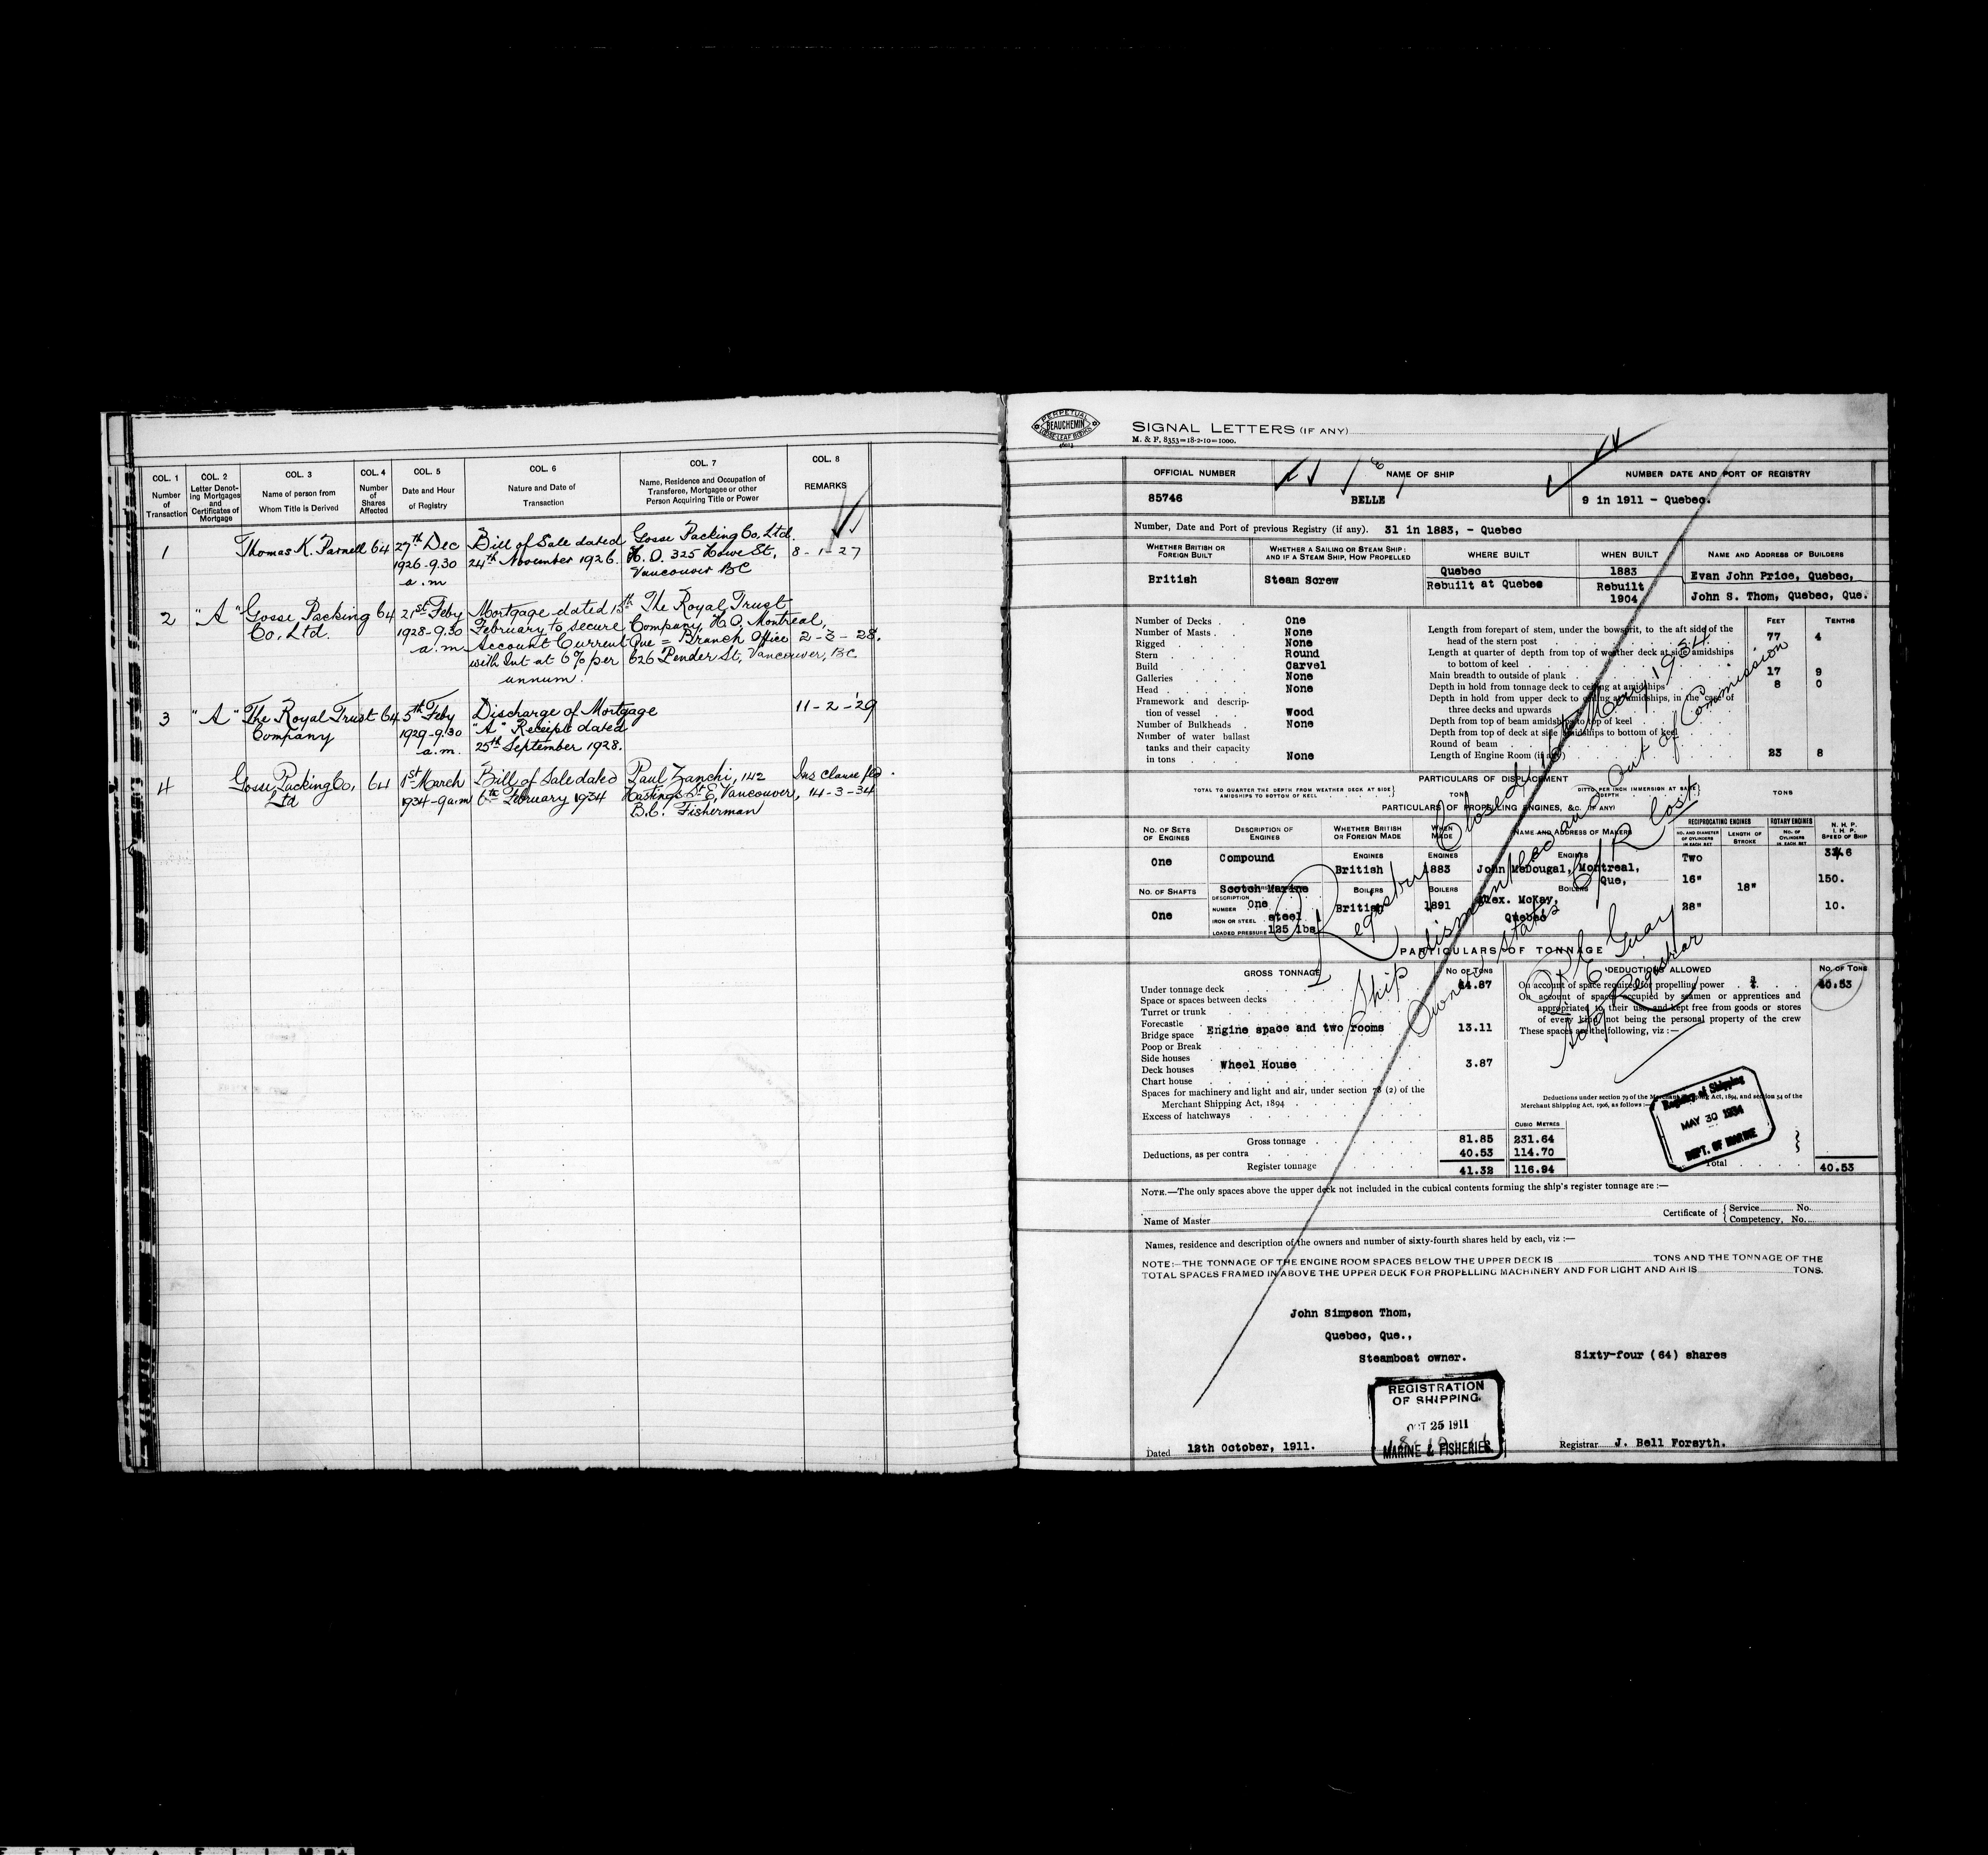 COL. 1 COL. 2 COL. 3 COL. 4 COL. 5 COL. 6 COL. 7 COL. 8
Number of Transaction
Letter Denoting Mortgages and Certificates of Mortgage
Name of person from Whom Title is Derived
Number of Shares Affected
Date and Hour of Registry
Nature and Date of Transaction
Name, Residence and Occupation of Transferee, Mortgagee or other Person Acquiring Title or Power
REMARKS
1 Thomas K. Parnell 64 27th Dec Bill of Sale dated Gosse Packing Co, Ltd.
1926-9.30 24th November 1926. H. O. 325 Howe St, 8-1-27
a.m Vancouver BC
2 "A" Gosse Packing 64 21st Feby Mortgage dated 15th The Royal Trust
Co, Ltd. 1928-9.30 February to secure Company, H.O, Montreal,
a.m Account Current Que = Branch Office 2-3-28.
with Int at 6% per 626 Pender St, Vancouver, BC
annum.
3 "A" The Royal Trust 64 5th Feby Discharge of Mortgage 11-2-29
Company 1929-9.30 "A" Receipt dated
a.m. 25th September 1928.
4 Gosse Packing Co, 64 1st March Bill of Sale dated Paul Zanchi, 142 Ins clause fld.
Ltd 1934-9a.m 6th February 1934 Hastings St E, Vancouver, 14-3-34
B.C. Fisherman
PERPETUAL
BEAUCHEMIN
LOOSE LEAF BOOKS
SIGNAL LETTERS (IF ANY)
M. & F. 8353=18-2-10=1000.
OFFICIAL NUMBER NAME OF SHIP NUMBER DATE AND PORT OF REGISTRY
85746 BELLE 9 in 1911 - Quebec.
Number, Date and Port of previous Registry (if any). 31 in 1883, - Quebec
WHETHER BRITISH OR FOREIGN BUILT
WHETHER A SAILING OR STEAM SHIP: AND IF A STEAM SHIP, HOW PROPELLED
WHERE BUILT WHEN BUILT NAME AND ADDRESS OF BUILDERS
British Steam Screw Quebec 1883 Evan John Price, Quebec,
Rebuilt at Quebec Rebuilt 1904 John S. Thom, Quebec, Que.
FEET TENTHS
Number of Decks One
Number of Masts None
Rigged None
Stern Round
Build Carvel
Galleries None
Head None
Framework and description of vessel Wood
Number of Bulkheads None
Number of water ballast tanks and their capacity in tons None
Length from forepart of stem, under the bowsprit, to the aft side of the head of the stern post 77 4
Length at quarter of depth from top of weather deck at side amidships to bottom of keel
Main breadth to outside of plank 17 9
Depth in hold from tonnage deck to ceiling at amidships 8 0
Depth in hold from upper deck to ceiling at amidships, in the case of three decks and upwards
Depth from top of beam amidships to top of keel
Depth from top of deck at side amidships to bottom of keel
Round of beam
Length of Engine Room (if any) 23 8
PARTICULARS OF DISPLACEMENT
TOTAL TO QUARTER THE DEPTH FROM WEATHER DECK AT SIDE AMIDSHIPS TO BOTTOM OF KEEL TONS
DITTO PER INCH IMMERSION AT SAME DEPTH TONS
PARTICULARS OF PROPELLING ENGINES, &C. (IF ANY)
NO. OF SETS OF ENGINES
DESCRIPTION OF ENGINES
WHETHER BRITISH OR FOREIGN MADE
WHEN MADE
NAME AND ADDRESS OF MAKERS
RECIPROCATING ENGINES ROTARY ENGINES
NO. AND DIAMETER OF CYLINDERS IN EACH SET
LENGTH OF STROKE
NO. OF CYLINDERS IN EACH SET
N. H. P. I. H. P. SPEED OF SHIP
ENGINES ENGINES ENGINES
One Compound British 1883 John McDougal, Montreal, Que, Two
16" 18" 150.
NO. OF SHAFTS Scotch Marine BOILERS BOILERS BOILERS
One DESCRIPTION
NUMBER One British 1891 Alex. McKay, Quebec 28" 10.
IRON OR STEEL steel
LOADED PRESSURE 125 lbs
PARTICULARS OF TONNAGE
GROSS TONNAGE NO OF TONS DEDUCTIONS ALLOWED NO. OF TONS
Under tonnage deck 64.87
Space or spaces between decks
Turret or trunk
Forecastle
Bridge space Engine space and two rooms 13.11
Poop or Break
Side houses
Deck houses Wheel House 3.87
Chart house
Spaces for machinery and light and air, under section 78 (2) of the Merchant Shipping Act, 1894
Excess of hatchways
On account of space required for propelling power 40.53
On account of spaces occupied by seamen or apprentices and appropriated to their use, and kept free from goods or stores of every kind, not being the personal property of the crew
These spaces are the following, viz :—
Deductions under section 79 of the Merchant Shipping Act, 1894, and section 54 of the Merchant Shipping Act, 1906, as follows :—
CUBIC METRES
Gross tonnage 81.85 231.64
Deductions, as per contra 40.53 114.70
Register tonnage 41.32 116.94
Total 40.53
Registry Closed 30th May, 1934.
Ship dismantled and out of Commission
Owner states C/R Lost
R E Guay
Actg Registrar
Registry of Shipping
MAY 30 1934
DEPT. OF MARINE
NOTE.—The only spaces above the upper deck not included in the cubical contents forming the ship's register tonnage are :—
Name of Master Certificate of Service No.
Competency, No.
Names, residence and description of the owners and number of sixty-fourth shares held by each, viz :—
NOTE:—THE TONNAGE OF THE ENGINE ROOM SPACES BELOW THE UPPER DECK IS TONS AND THE TONNAGE OF THE
TOTAL SPACES FRAMED IN ABOVE THE UPPER DECK FOR PROPELLING MACHINERY AND FOR LIGHT AND AIR IS TONS.
John Simpson Thom,
Quebec, Que.,
Steamboat owner. Sixty-four (64) shares
REGISTRATION
OF SHIPPING.
OCT 25 1911
MARINE & FISHERIES
Dated 12th October, 1911. Registrar J. Bell Forsyth.